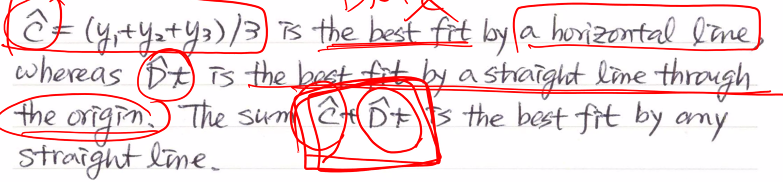 Ĉ = (y₁+y₂+y₃)/3 is the best fit by a horizontal line,
whereas D̂t is the best fit by a straight line through
the origin. The sum Ĉ+D̂t is the best fit by any
straight line.